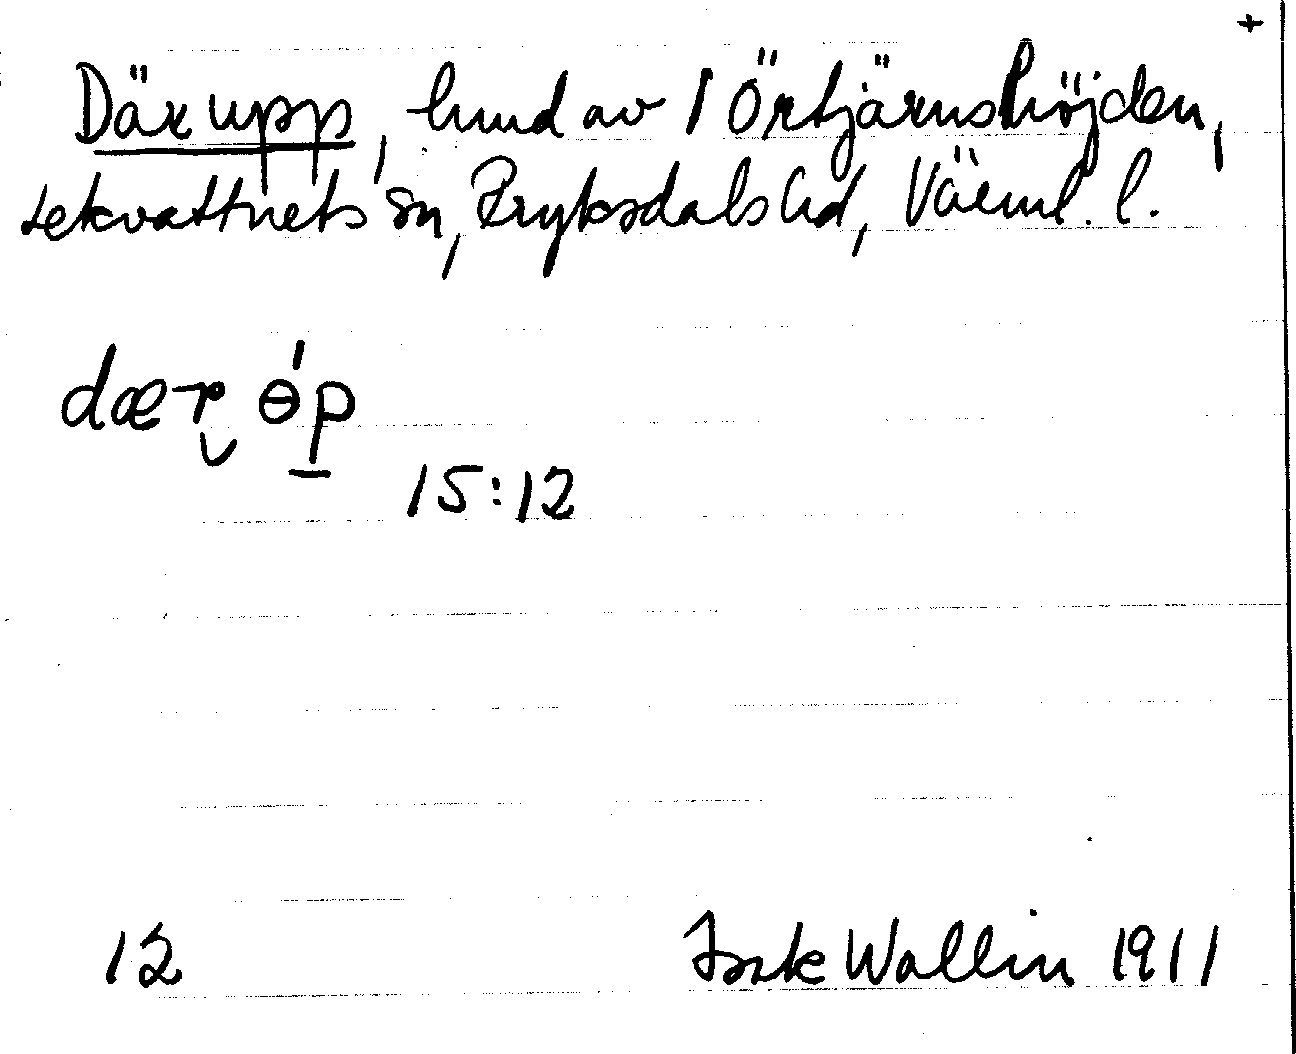 +
Där upp, hmd av 1 Örtjärnshöjden,
Lekvattnets sn, Fryksdals hd, Värml. l.
dær ɵ́p
15:12
12 Wallin 1911